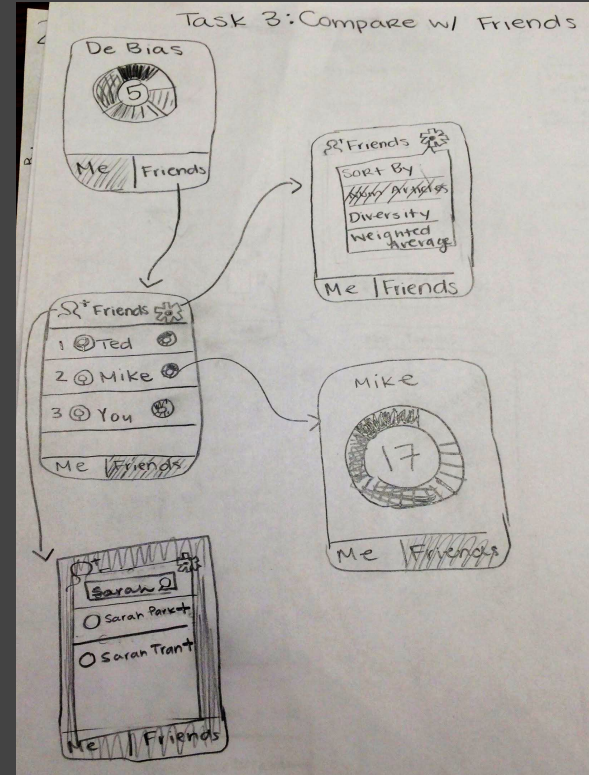 Task 3: Compare w/ Friends
De Bias
5
Me Friends
Friends
Sort By
Diversity
Weighted
Average
Me Friends
Friends
1 Ted
2 Mike
3 You
Me Friends
Mike
17
Me Friends
Sarah
Sarah Park+
Sarah Tran+
Me Friends